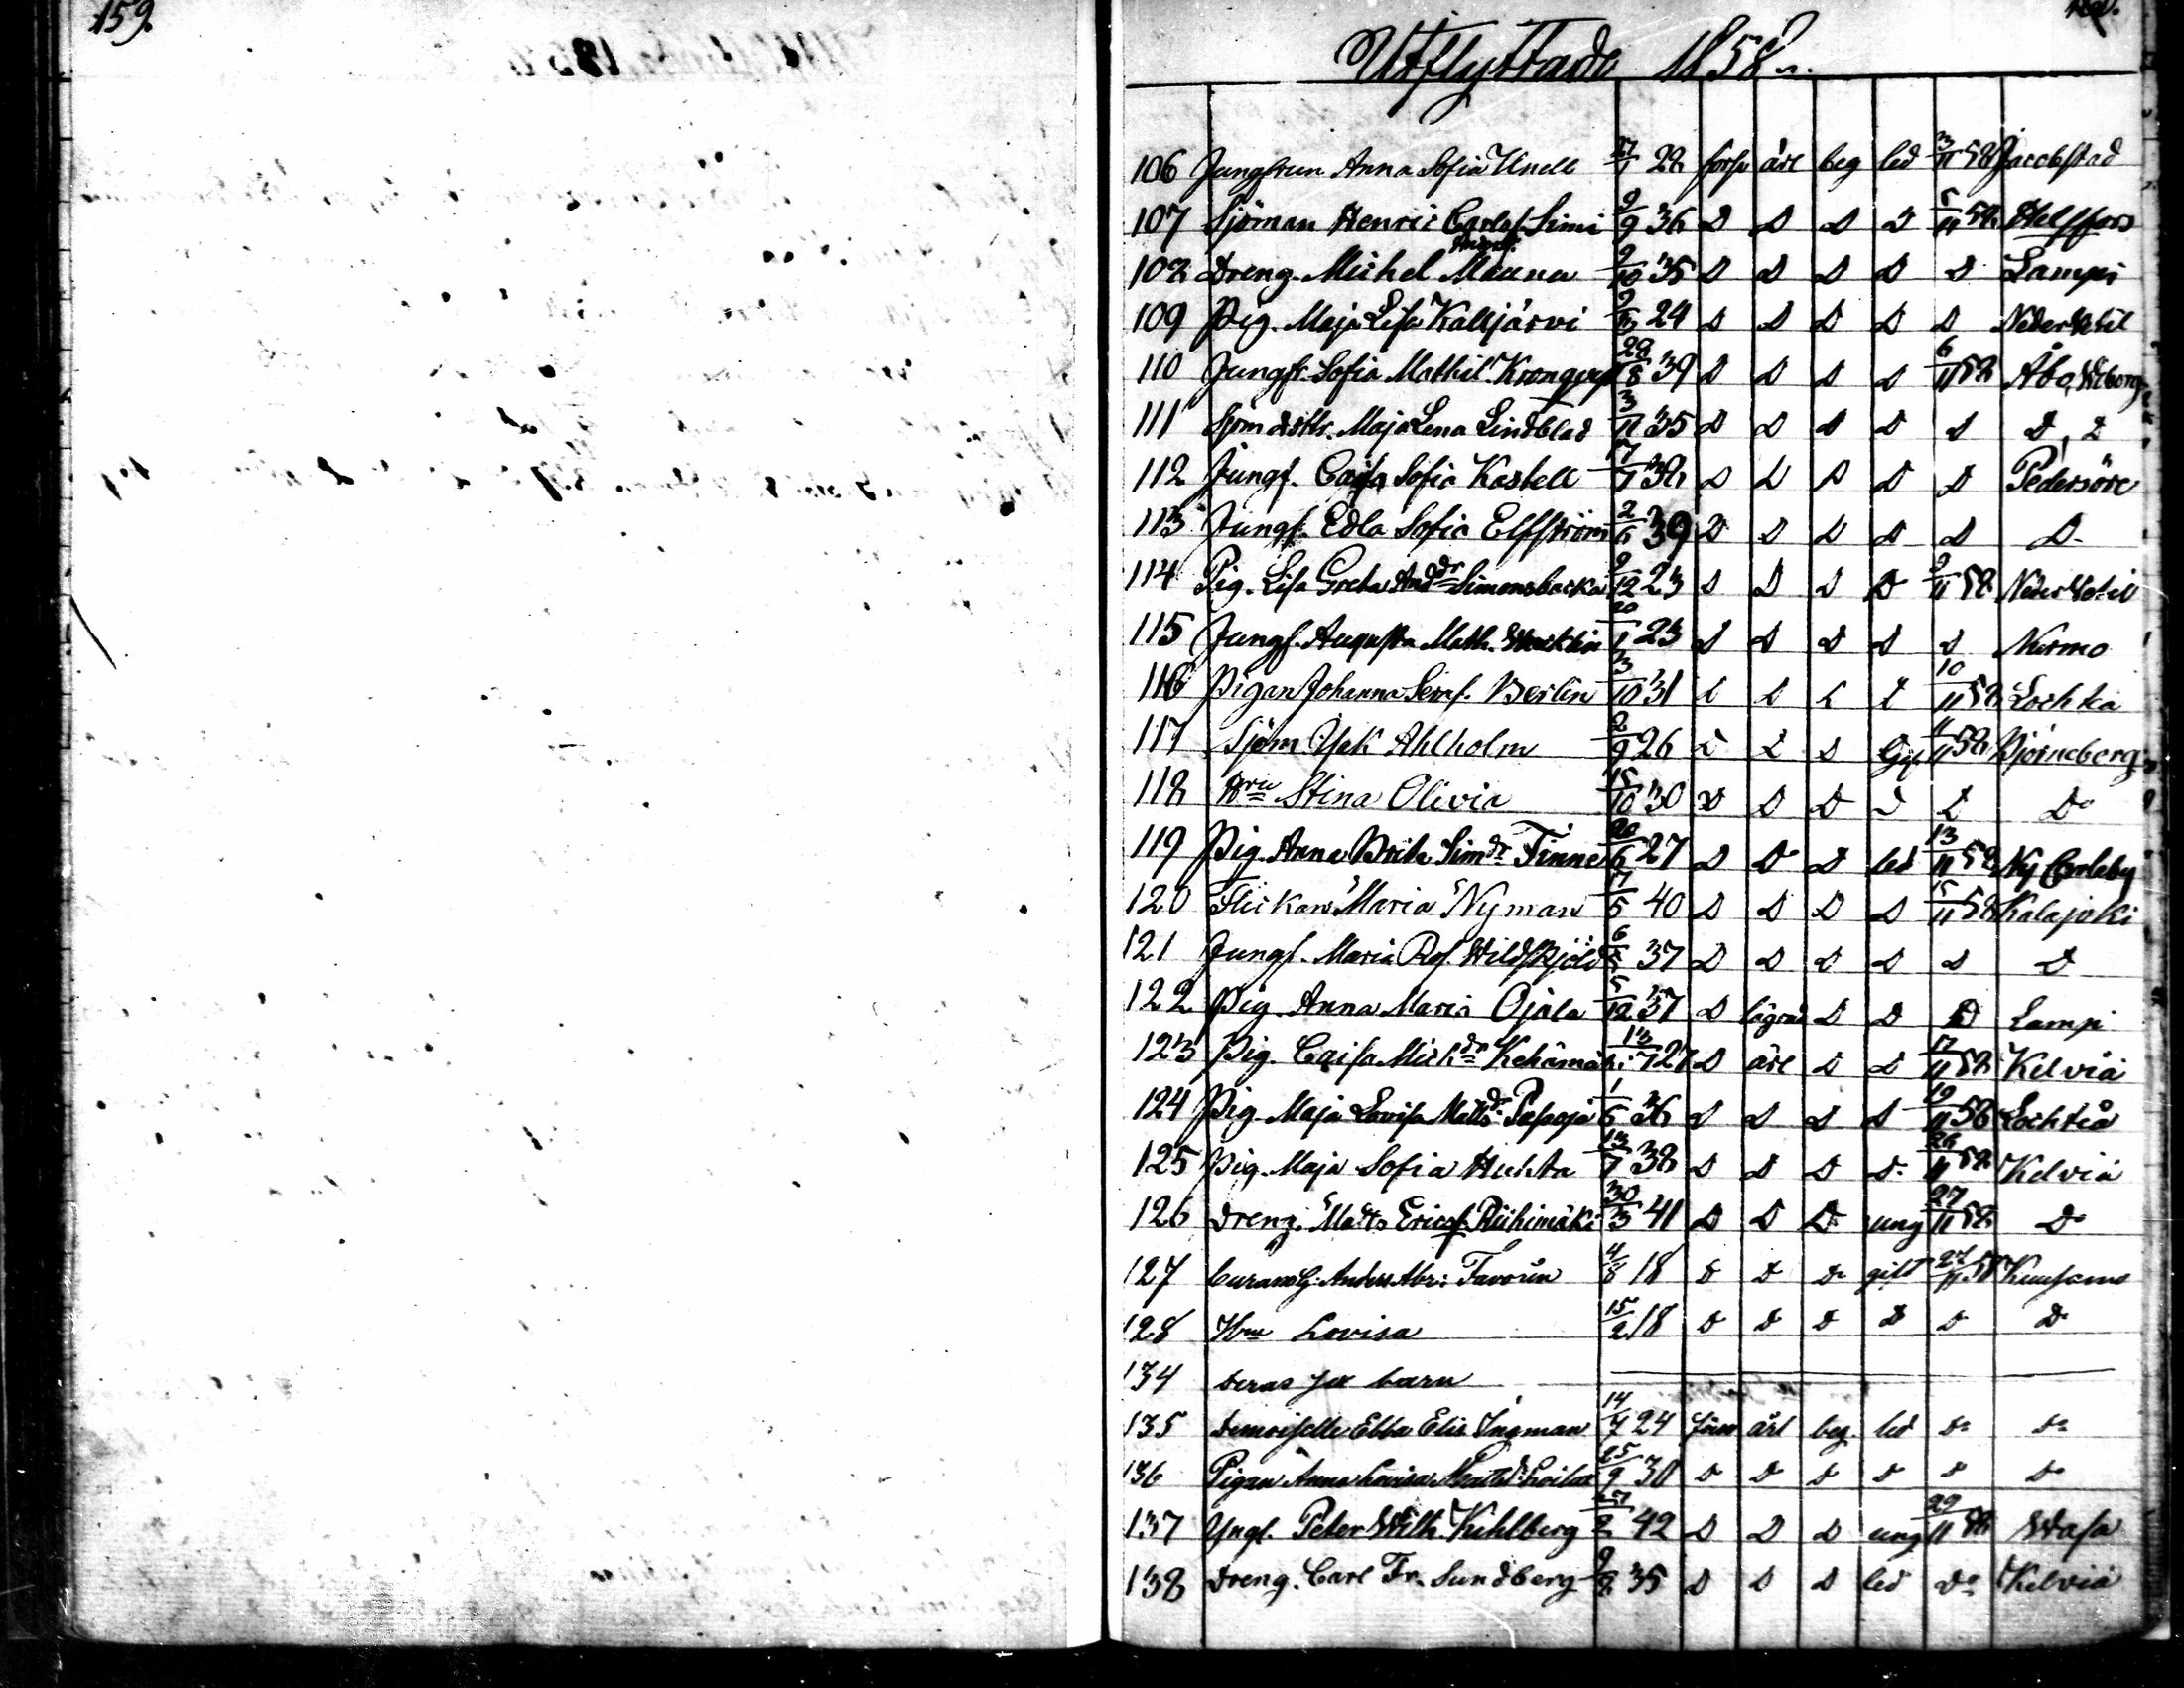 159.
Utflyttade 1858.
106 Jungfrun Anna Sofia Unell 27/1 28 förs. ärl beg led 3/11 58 Jacobstad
107 Sjöman Henric Carlss. Simi 9/9 36 D D D D 5/11 58 Helsfors
108 Dreng. Michel Mauna 9/10 35 D D D D D Lampi
109 Pig. Maja Lisa Kalljärvi 24 D D D D D Nedervetil
110 Jungfr. Sofia Mathil. 28/8 39 D D D D 6/11 58 Åbo, Wiborg
111 Sjöm dottr. Maja Lena Lindblad 3/11 35 D D D D D D, D
112 Jungf. Cajsa Sofia Kastell 17/1 38 D D D D D Pedersöre
113 Jungf. Edla Sofia Elfström 2/6 39 D D D D D D
114 Pig. Lisa Greta And dr Simonsbacka 9/12 23 D D D D 9/11 58 Nedervetil
115 Jungf. Augusta Math. 20/1 23 D D D D D Nurmo
116 Pigan Johanna Seraf. Berlin 3/10 31 D D D D 10/11 58 Lochteå
117 Sjöm. Jak Ahlholm 2/9 26 D D D Gif. 11/11 58 Björneborg
118 Hru Stina Olivia 15/10 30 D D D D D Do
119 Pig. Anna Brita Sim dr Finne 20/6 27 D D D led 13/11 58 Ny Carleby
120 Flickan Maria Nyman 17/5 40 D D D D 15/11 58 Kalajoki
121 Jungf. Maria Ros. Wildskjöld 37 D D D D D D
122 Pig. Anna Maria Ojala 5/12 37 D D D D Lampi
123 Pig. Caisa Mich dr Kehämäki 13/7 27 D ärl D D 17/11 58 Kelviå
124 Pig. Maja Lovisa Matts dr Papoja 1/6 36 D D D D 19/11 58 Lochteå
125 Pig. Maja Sofia Huhta 13/7 38 D D D D 26/11 58 Kelviå
126 Dreng. Matts Ericss. Riihimäki 30/3 41 D D D ung 27/11 58 Do
127 Anders Abr: Favorin 4/8 18 D D D gift 27/11 58 Kuusamo
128 Hru Lovisa 15/2 18 D D D D D D
134 Deras sex barn
135 Demoiselle Ebba Elis. Ingman 14/7 24 förs ärl beg. led Do Do
136 Pigan Anna Lovisa 25/9 30 D D D D D Do
137 Yngl. Peter Wilh. Kihlberg 42 D D D ung 29/11 58 Wasa
138 Dreng. Carl Fr. Sundberg 9/8 35 D D D led Do Kelviå